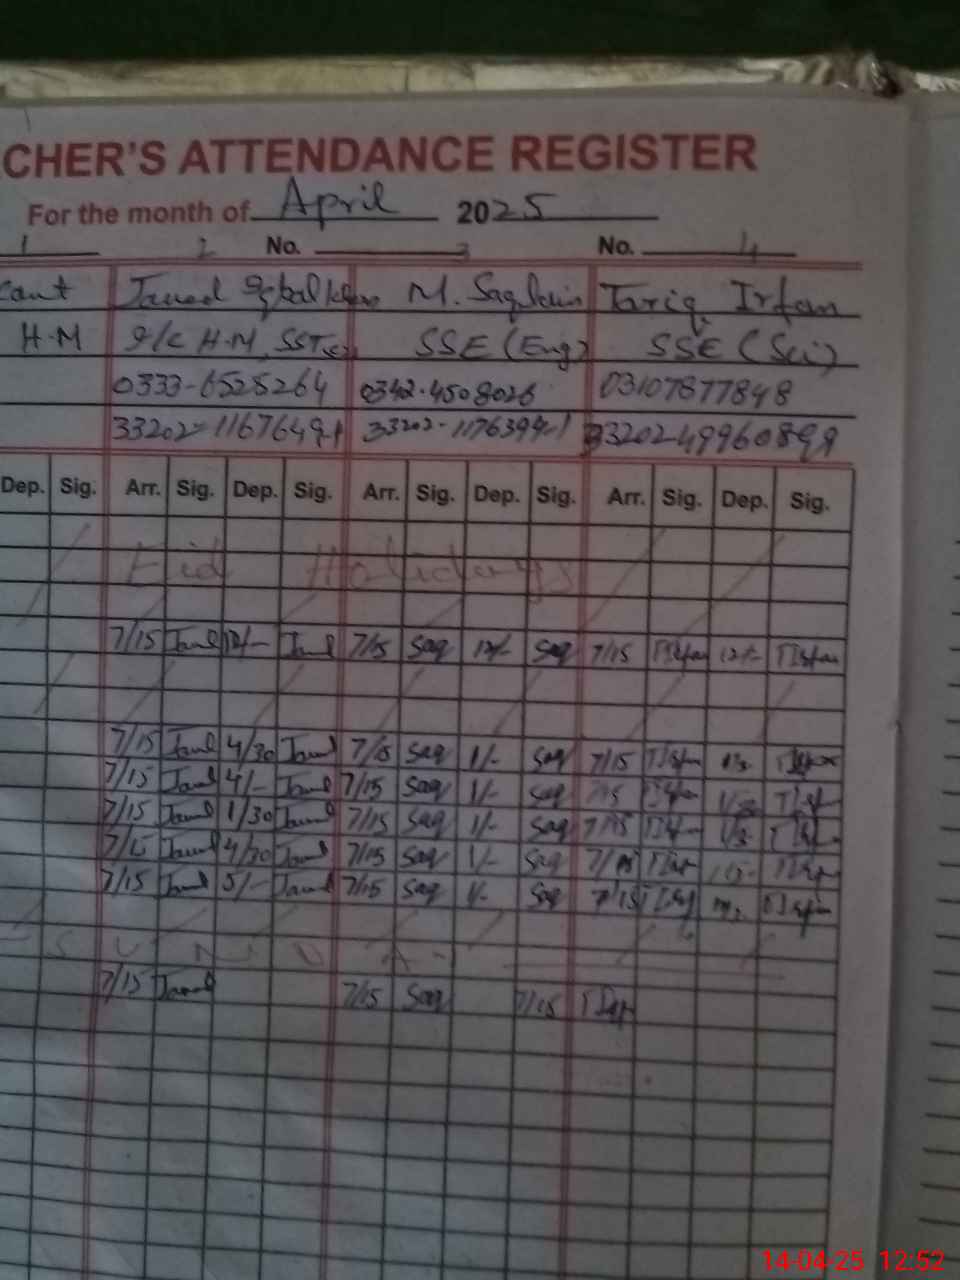 CHER'S ATTENDANCE REGISTER
For the month of April 2025
1 2 No. 3 No. 4
cant Javed Iqbal Khan M. Saqlain Tariq Irfan
H.M I/C H.M, SST SSE (Eng) SSE (Sci)
0333-6528264 0342-4508026 03107877848
33202-1167649-1 33202-1176399-1 33202-4996089
Dep. Sig. Arr. Sig. Dep. Sig. Arr. Sig. Dep. Sig. Arr. Sig. Dep. Sig.
Eid Holidays
7/15 Javed 12/- Javed 7/15 Saq 12/- Saq 7/15 TIrfan 12/- TIrfan
7/15 Javed 4/30 Javed 7/15 Saq 1/- Saq 7/15 TIrfan
7/15 Javed 4/- Javed 7/15 Saq 1/- Saq TIrfan
7/15 Javed 1/30 Javed 7/15 Saq 1/- Saq 7/15
7/15 Javed 4/30 Javed 7/15 Saq 1/- Saq
7/15 Javed 5/- Javed 7/15 Saq 1/- Saq 7/15
S U N D A
7/15 Javed 7/15 Saq 7/15
14-04-25 12:52